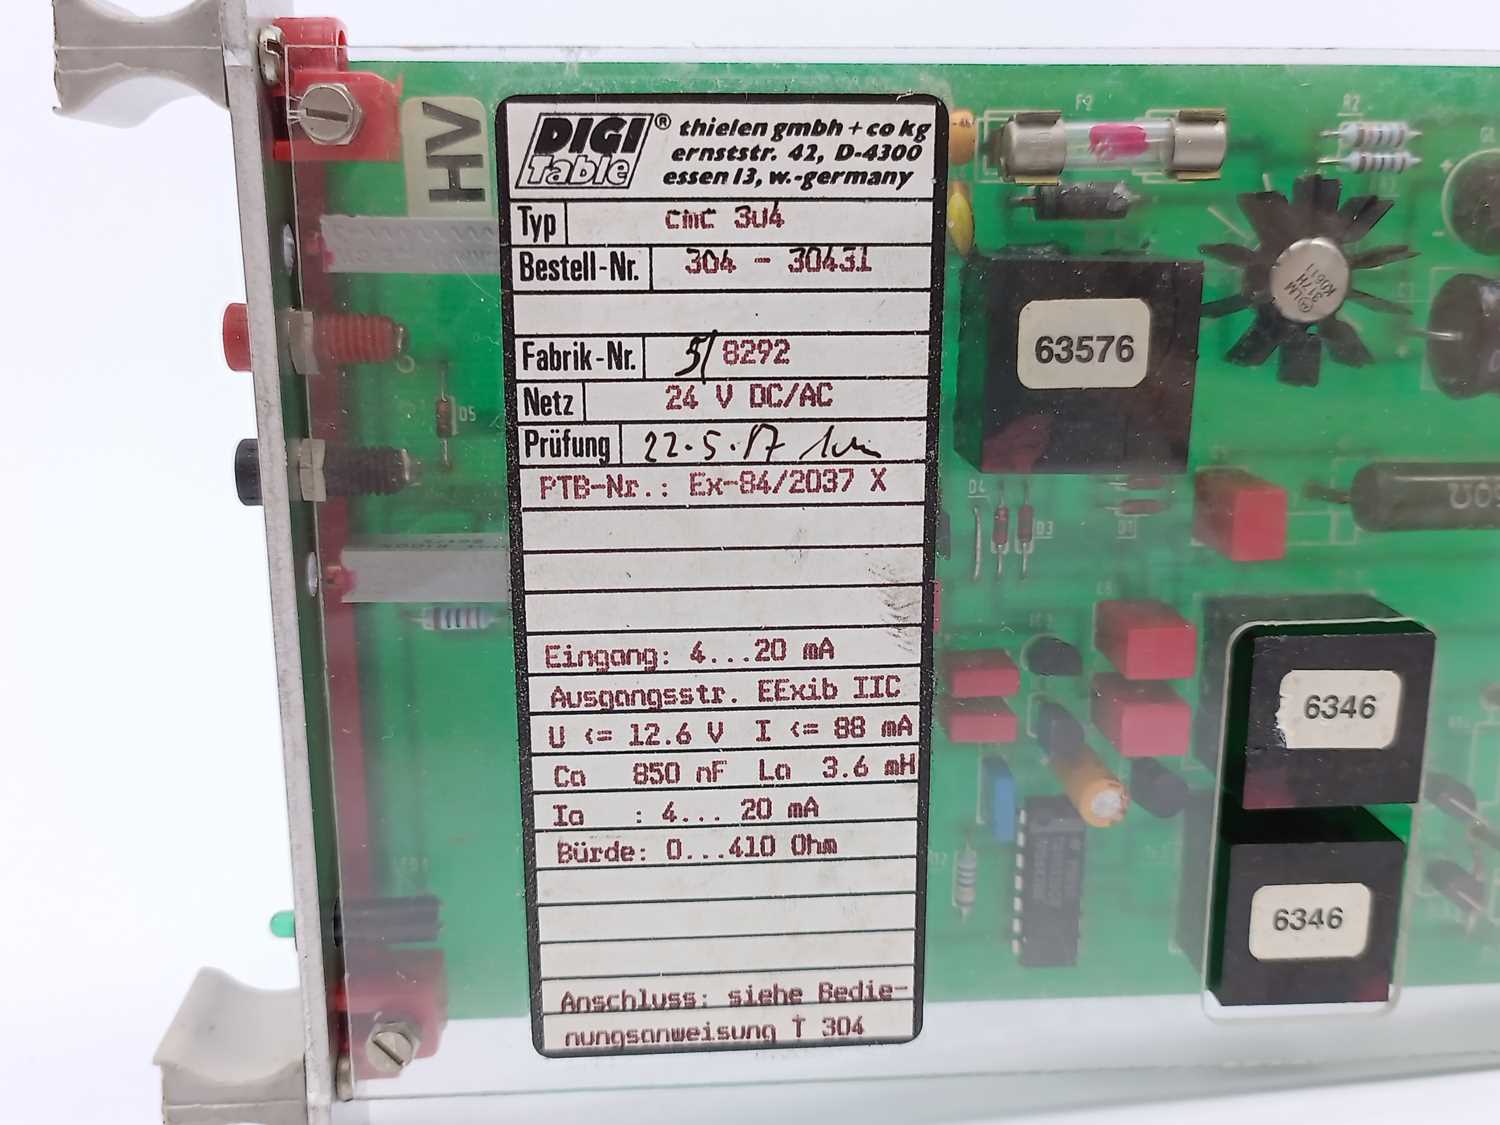 HV
DIGI Table ®
thielen gmbh + co kg
ernststr. 42, D-4300
essen 13, w.-germany
Typ cmc 304
Bestell-Nr. 304 - 30431
Fabrik-Nr. 5/8292
Netz 24 V DC/AC
Prüfung 22.5.87
PTB-Nr.: Ex-84/2037 X
Eingang: 4...20 mA
Ausgangsstr. EExib IIC
U <= 12.6 V I <= 88 mA
Ca 850 nF La 3.6 mH
Ia : 4... 20 mA
Bürde: 0...410 Ohm
Anschluss: siehe Bedie-
nungsanweisung T 304
F2
R2
LM
317H
K0611
63576
D5
D4
D3
D1
6346
6346